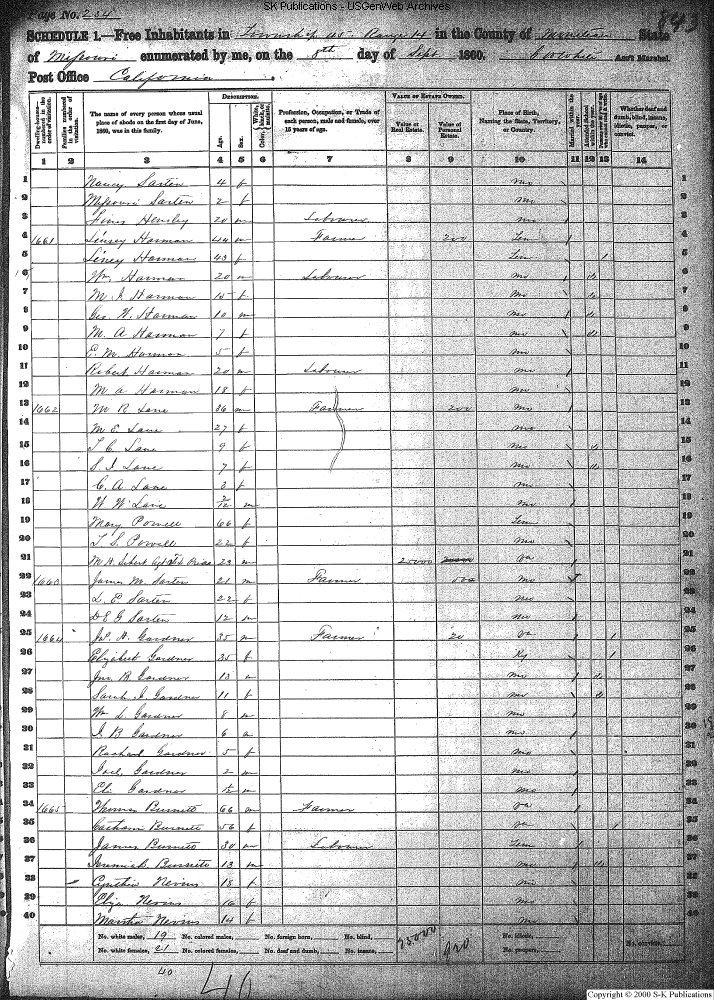 SK Publications - USGenWeb Archives
Page No. 234 843
SCHEDULE 1.—Free Inhabitants in Township 45 Range 14 in the County of Moniteau State
of Missouri enumerated by me, on the 8th day of Sept 1860. Ass't Marshal.
Post Office California.
DESCRIPTION. VALUE OF ESTATE OWNED.
Dwelling-houses—numbered in the order of visitation. Families numbered in the order of visitation. The name of every person whose usual place of abode on the first day of June, 1860, was in this family. Age. Sex. Color, White, black, or mulatto. Profession, Occupation, or Trade of each person, male and female, over 15 years of age. Value of Real Estate. Value of Personal Estate. Place of Birth, Naming the State, Territory, or Country. Married within the year. Attended School within the year. Whether deaf and dumb, blind, insane, idiotic, pauper, or convict.
1 2 3 4 5 6 7 8 9 10 11 12 13 14
1 Nancy Sarten 4 f Mo 1
2 Missouri Sarten 2 f Mo 2
3 Hensley 20 m Labourer Mo 3
4 1661 Linsey Harman 44 m Farmer 200 Ten 4
5 Harman 43 f Ten 1 5
6 Wm Harman 20 m Labourer Mo 6
7 M. J. Harman 15 f Mo 7
8 Geo. W. Harman 10 m Mo 8
9 M. A Harman 7 f Mo 9
10 E. M. Harman 5 f Mo 10
11 Robert Harman 20 m Labourer Mo 11
12 M A Harman 18 f Mo 12
13 1662 M R Lane 36 m Farmer 200 Mo 13
14 M E Lane 27 f Mo 14
15 Lane 9 f Mo 15
16 S. J Lane 7 f Mo 16
17 C. A Lane 3 f Mo 17
18 W W Lane 2/12 m Mo 18
19 Mary Powell 66 f Ten 19
20 T S. Powell 22 f Mo 20
21 M H. 23 m 25000 Va 21
22 1663 James M. Sarten 21 m Farmer 500 Mo 22
23 L. P Sarten 22 f Mo 23
24 Sarten 12 m Mo 24
25 1664 H. Gardner 35 m Farmer 20 Va 1 25
26 Elizabeth Gardner 35 f Ky 1 26
27 Jno. R Gardner 13 m Mo 27
28 Sarah J. Gardner 11 f Mo 28
29 Wm L. Gardner 8 m Mo 29
30 J. B Gardner 6 Mo 30
31 Rachael Gardner 5 f Mo 31
32 Joel Gardner 2 m Mo 32
33 Eli Gardner m Mo 33
34 1665 Thomas Burnett 66 m Farmer Va 34
35 Burnett 56 f Va 1 35
36 James Burnett 30 m Labourer Ten 36
37 Jeremiah Burnett 13 m Mo 37
38 Cynthia Nevins 18 f Mo 38
39 Eliza Nevins 16 f Mo 39
40 Martha Nevins 14 f Mo 40
No. white males, 19 No. colored males, No. foreign born, No. blind, 25000 920 No. idiotic, No. convicts,
No. white females, 21 No. colored females, No. deaf and dumb, No. insane, No. paupers,
40 40
Copyright © 2000 S-K Publications